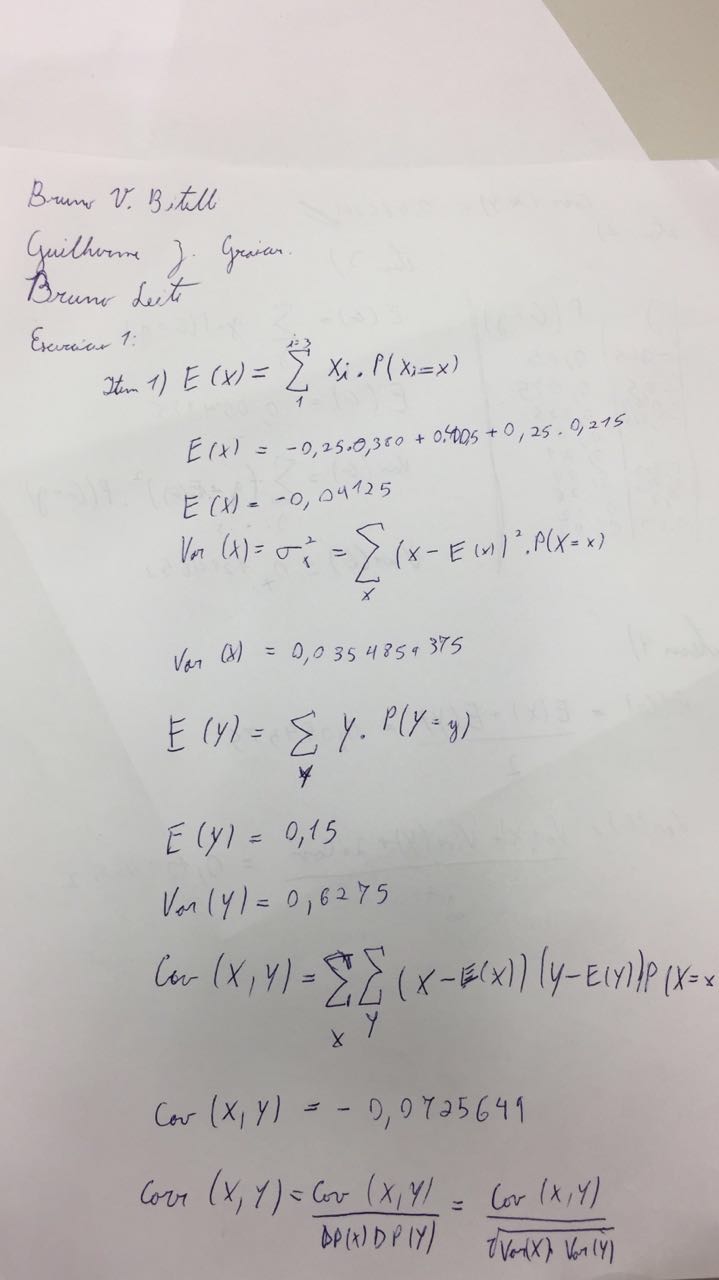 Bruno V. Bitell
Guilherme J. Graiar.
Bruno Leite
Exercício 1:
i=3
Item 1) E(X) = ∑ Xi . P(Xi=x)
1
E(X) = -0,25.0,380 + 0.0,405 + 0,25 . 0,215
E(X) = -0,04125
Var (X) = σ²x = ∑ (x - E(x))² . P(X=x)
x
Var (X) = 0,0354859375
E(Y) = ∑ Y. P(Y=y)
y
E(Y) = 0,15
Var(Y) = 0,6275
Cov (X,Y) = ∑∑ (X-E(X)) (Y-E(Y)) P(X=x
X Y
Cov (X,Y) = -0,0725649
Corr (X,Y) = Cov (X,Y) / DP(X) DP(Y) = Cov (X,Y) / √Var(X). Var(Y)